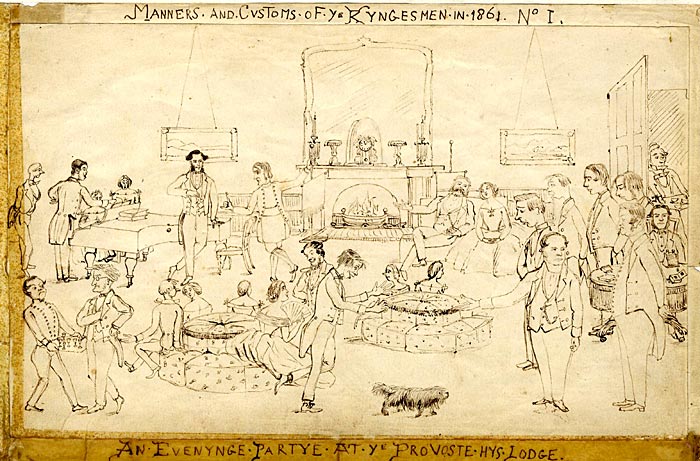 MANNERS·AND·CUSTOMS·OF·Yᵉ KYNGESMEN·IN·1861. Nº I.
AN·EVENYNGE·PARTYE·AT·Yᵉ PROVOSTE·HYS·LODGE.